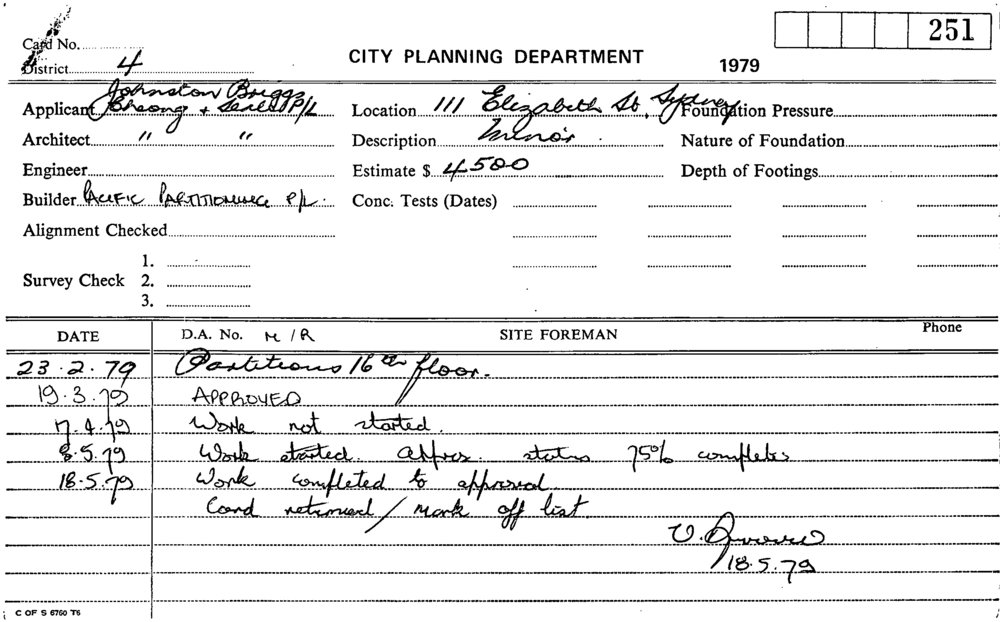 251
Card No.
CITY PLANNING DEPARTMENT
District 4
1979
Applicant Johnston Briggs Cheong + Searle P/L
Location 111 Elizabeth St, Sydney
Foundation Pressure
Architect " "
Description Minor
Nature of Foundation
Engineer
Estimate $ 4500
Depth of Footings
Builder PACIFIC PARTITIONING P/L.
Conc. Tests (Dates)
Alignment Checked
Survey Check 1.
2.
3.
DATE D.A. No. M/R SITE FOREMAN Phone
23.2.79 Partitions 16th floor.
19.3.79 APPROVED
17.4.79 Work not started.
8.5.79 Work started. Approx. status 75% completes
18.5.79 Work completed to approval
Card returned / mark off list
V.
18.5.79
C OF S 6760 T6